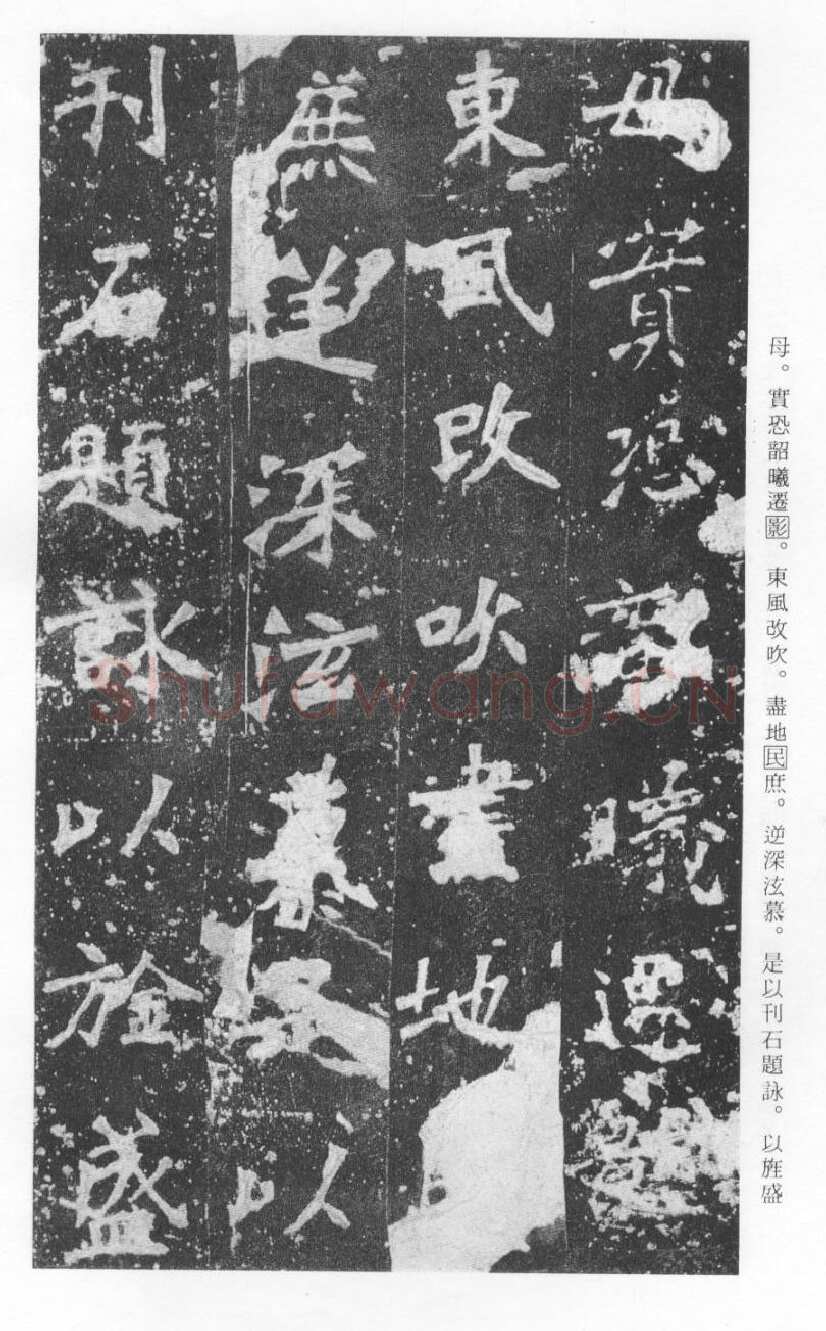 母實恐韶曦遷
東風改吹盡地
庶逆深泫慕是以
刊石題詠以旌盛
母。實恐韶曦遷影。東風改吹。盡地民庶。逆深泫慕。是以刊石題詠。以旌盛
shufawang.CN